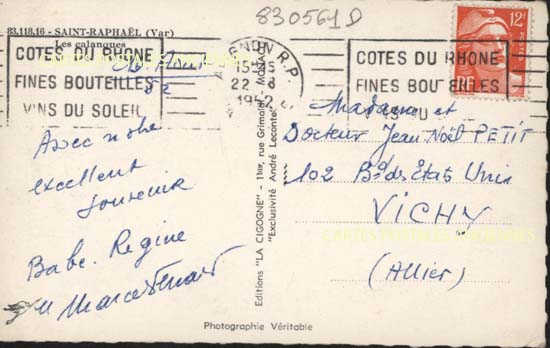 830561D
83.118.16 - SAINT-RAPHAËL (Var)
Les calanques
COTES DU RHONE
FINES BOUTEILLES
VINS DU SOLEIL
AVIGNON R.P.
15H15
22 - 8
1952
COTES DU RHONE
FINES BOUTEILLES
VINS DU
12F
RF
Avec notre
excellent
souvenir
Babe. Regine
et Marcel
Madame et
Docteur Jean Noël PETIT
102 Bd des Etats Unis
VICHY
(Allier)
CARTES POSTALES
Editions "LA CIGOGNE" - 1ter, rue Grimaldi, MONACO
"Exclusivité André Leconte"
Photographie Véritable